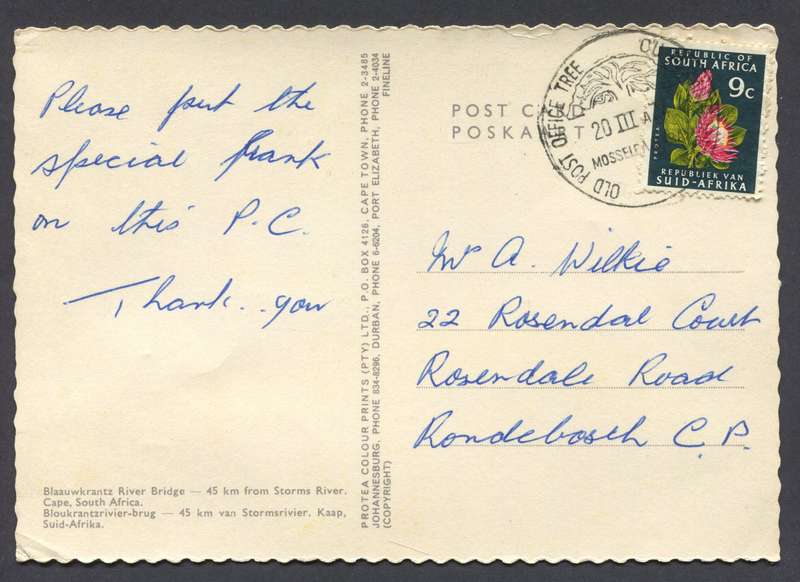 Please put the
special frank
on this P.C.
Thank.. you
Blaauwkrantz River Bridge — 45 km from Storms River.
Cape, South Africa.
Bloukrantzrivier-brug — 45 km van Stormsrivier. Kaap,
Suid-Afrika.
PROTEA COLOUR PRINTS (PTY) LTD., P.O. BOX 4126, CAPE TOWN, PHONE 2-3485
JOHANNESBURG. PHONE 834-8296, DURBAN, PHONE 6-6204, PORT ELIZABETH, PHONE 2-4034
(COPYRIGHT) FINELINE
POST CARD
POSKAART
OLD POST OFFICE TREE
20 III
REPUBLIC OF
SOUTH AFRICA
9c
PROTEA
REPUBLIEK VAN
SUID-AFRIKA
Mr A. Wilkie
22 Rosendal Court
Rosendale Road
Rondebosch C.P.